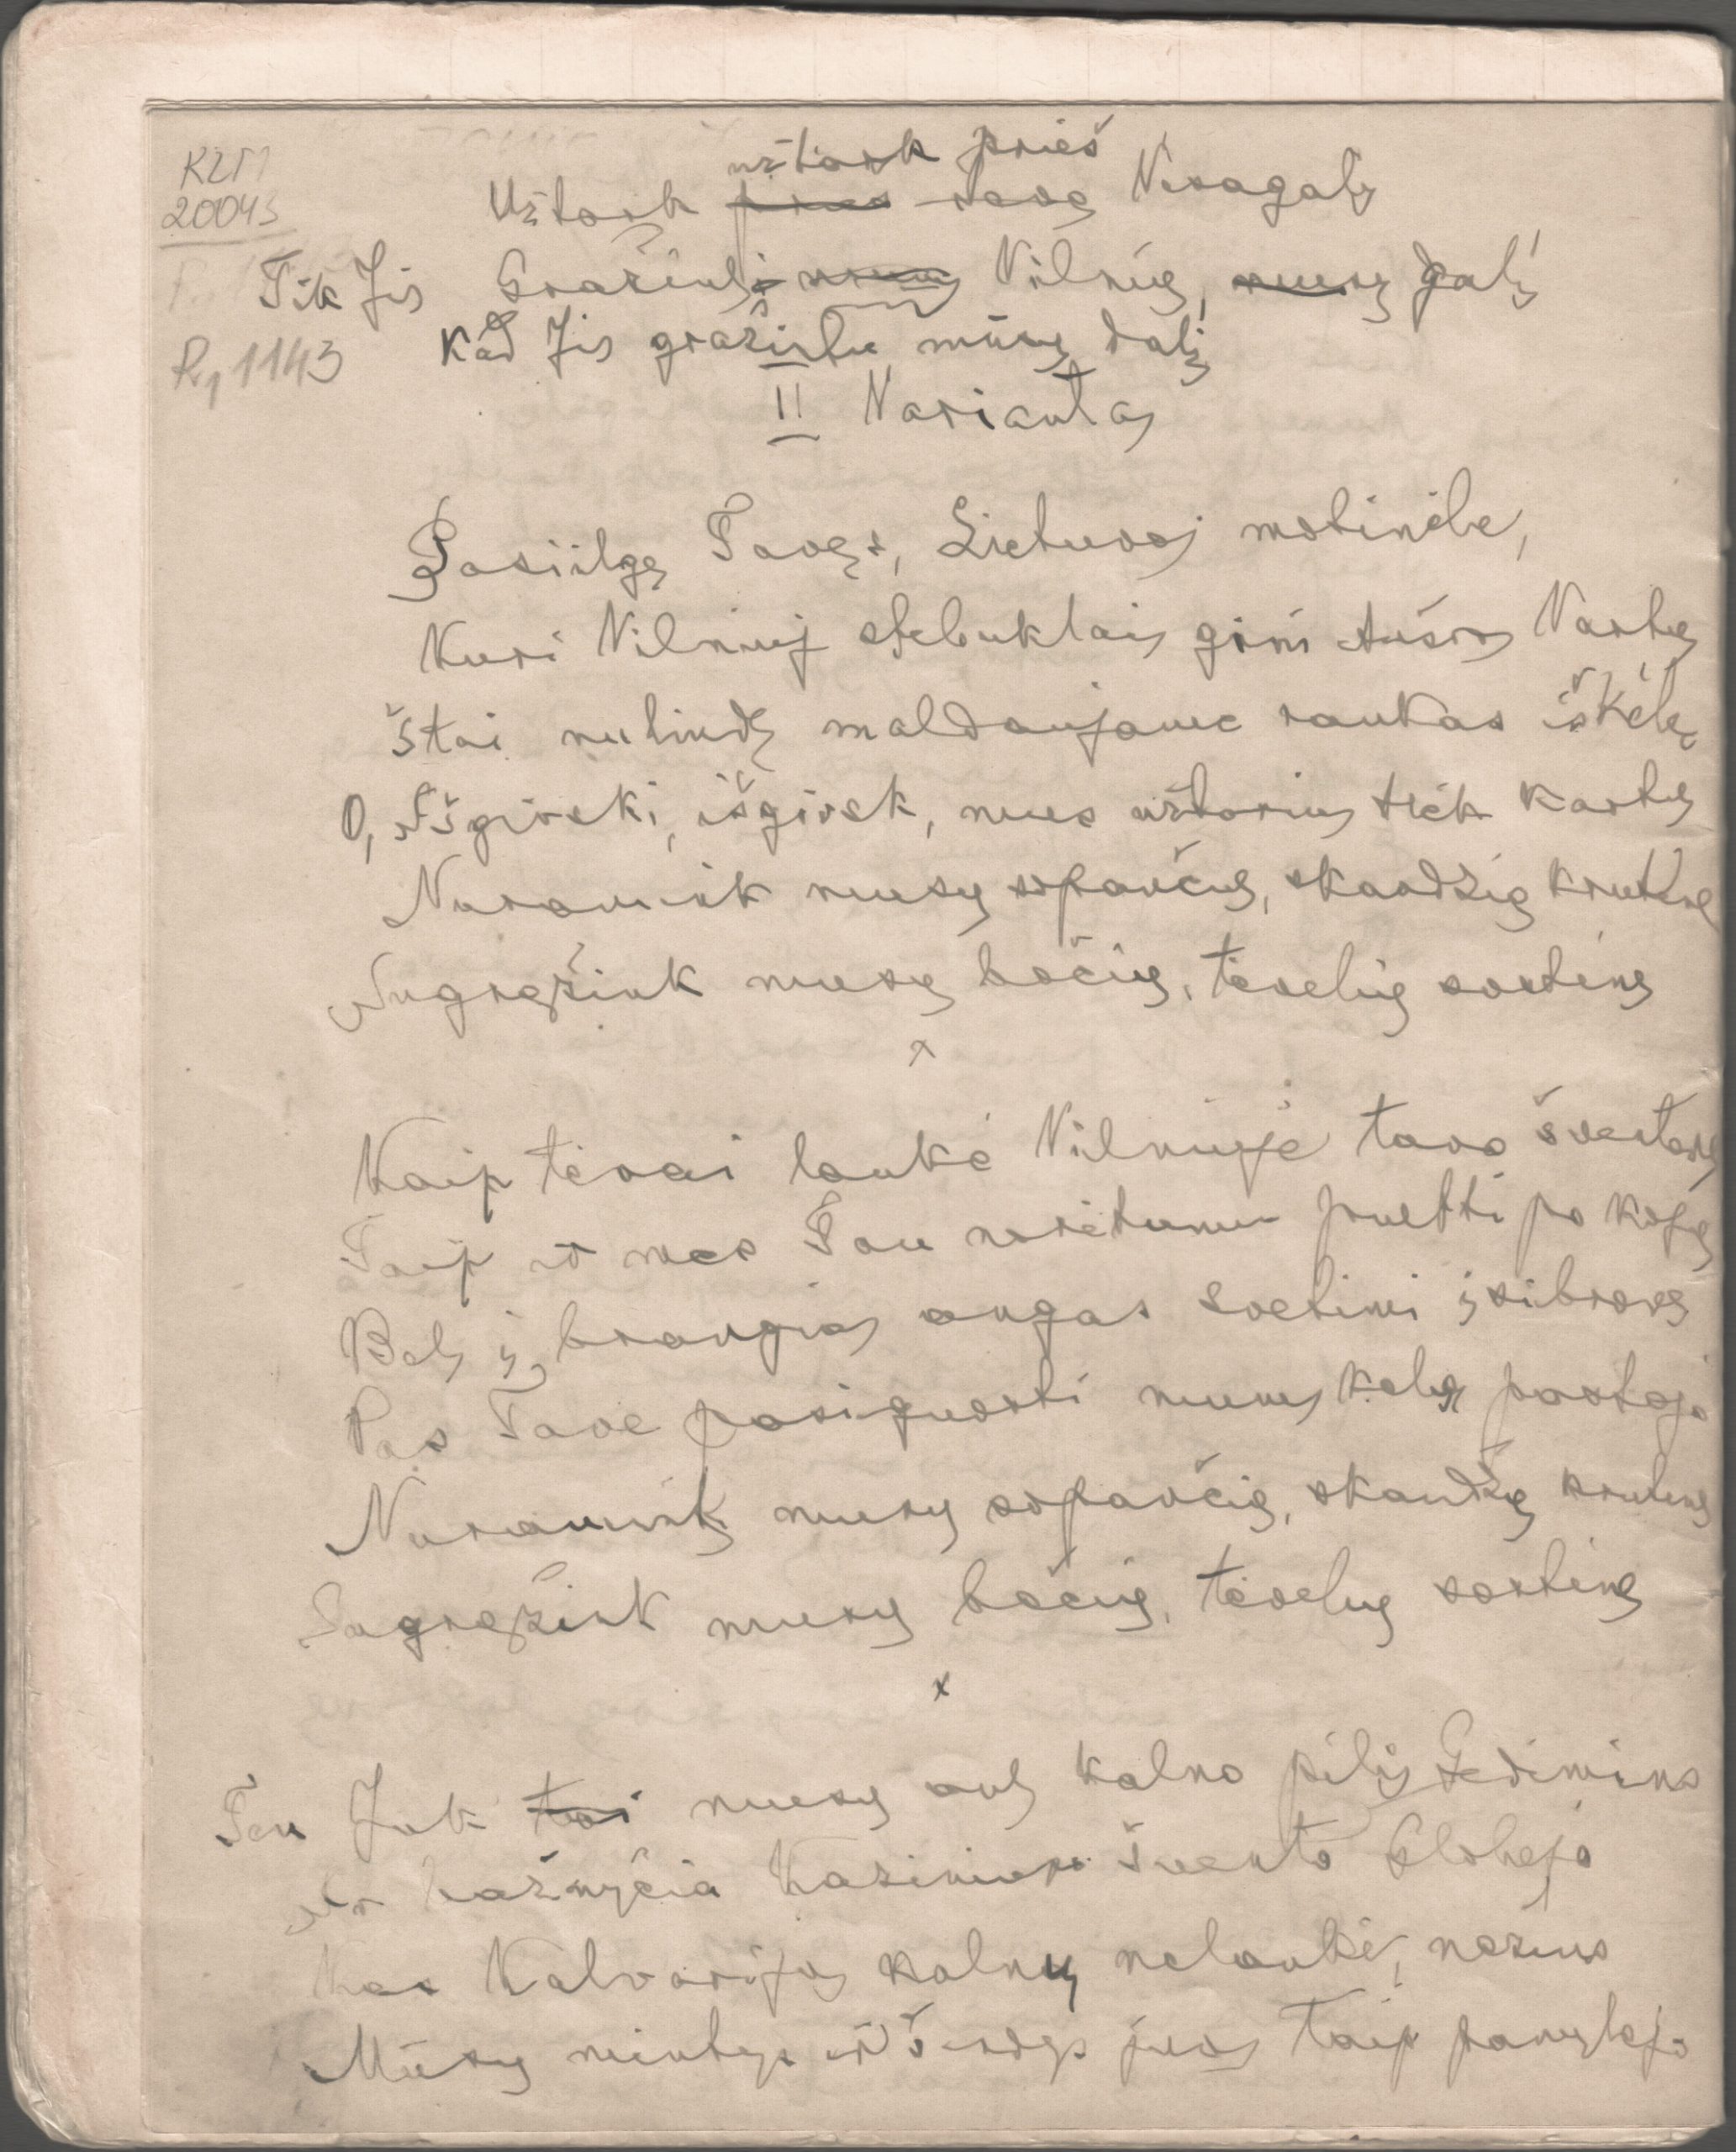 KLM
20043
R, 1143
užtark prieš
Užtark prieš savo Visagalį
Tik Jis Gražinti mums Vilnių, mūsų galį
Kad Jis gražintu mūsų dalį
II Variantas
Pasiilgę Tavęs, Lietuvoj motinėle,
Kuri Vilniuj stebuklais gini Aušros Vartų
Štai nuliudę maldaujame rankas iškėlę
O, Išgirski, išgirsk, mus užtarius tiek kartų
Nuramink musų sopančią, skaudžią krutinę
Sugrąžink musų bočių, tėvelių sostinę
x
Kaip tėvai laukė Vilniuje tavo šventovėj
Taip ir mes Tau norėtume pulti po kojų
Bet į brangias angas svetimi įsibrovę
Pas Tave pasiguosti mums kelią pastojo
Nuramink musų sopančią, skaudžią krutinę
Sugrąžink musų bočių, tėvelių sostinę
x
Ten Juk tai musų ant kalno pilis Gedimino
Ar bažnyčia Kazimiero švento
Kas Kalvarijos kalnų nelankė, nežino
Mūsų mintys ir širdys juos taip pamylėjo